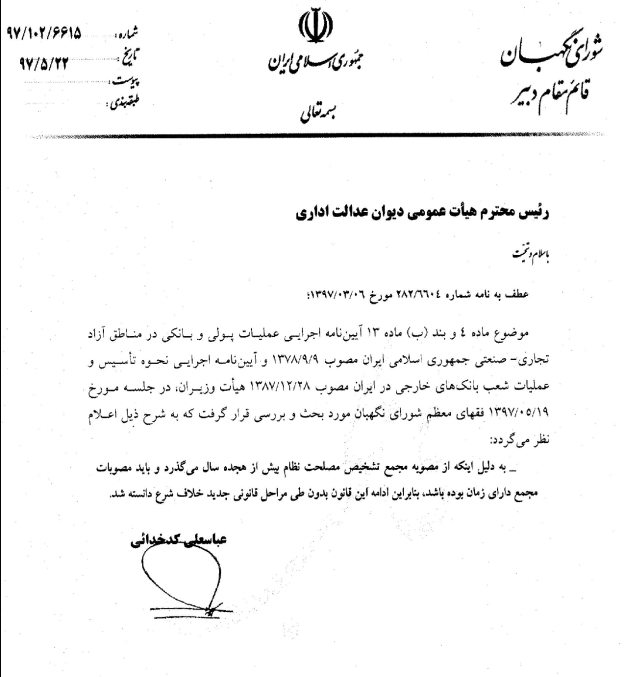 شماره: ۹۷/۱۰۲/۶۶۱۵
تاریخ: ۹۷/۵/۲۲
پیوست:
طبقه‌بندی:
جمهوری اسلامی ایران
بسمه تعالی
شورای نگهبان
قائم مقام دبیر
رئیس محترم هیأت عمومی دیوان عدالت اداری
باسلام و تحیّت
عطف به نامه شماره ۲۸۲/٦٦٠٤ مورخ ۱۳۹۷/۰۳/۰۶؛
موضوع ماده ٤ و بند (ب) ماده ۱۳ آیین‌نامه اجرایی عملیات پولی و بانکی در مناطق آزاد
تجاری- صنعتی جمهوری اسلامی ایران مصوب ۱۳۷۸/۹/۹ و آیین‌نامه اجرایی نحوه تأسیس و
عملیات شعب بانک‌های خارجی در ایران مصوب ۱۳۸۷/۱۲/۲۸ هیأت وزیران، در جلسه مورخ
۱۳۹۷/۰۵/۱۹ فقهای معظم شورای نگهبان مورد بحث و بررسی قرار گرفت که به شرح ذیل اعلام
نظر می‌گردد:
_ به دلیل اینکه از مصوبه مجمع تشخیص مصلحت نظام بیش از هجده سال می‌گذرد و باید مصوبات
مجمع دارای زمان بوده باشد، بنابراین ادامه این قانون بدون طی مراحل قانونی جدید خلاف شرع دانسته شد.
عباسعلی کدخدائی